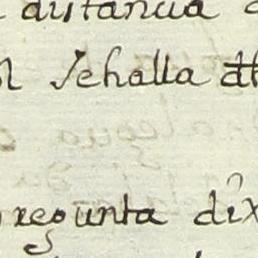 distancia
Sehalla dh
regunta dix